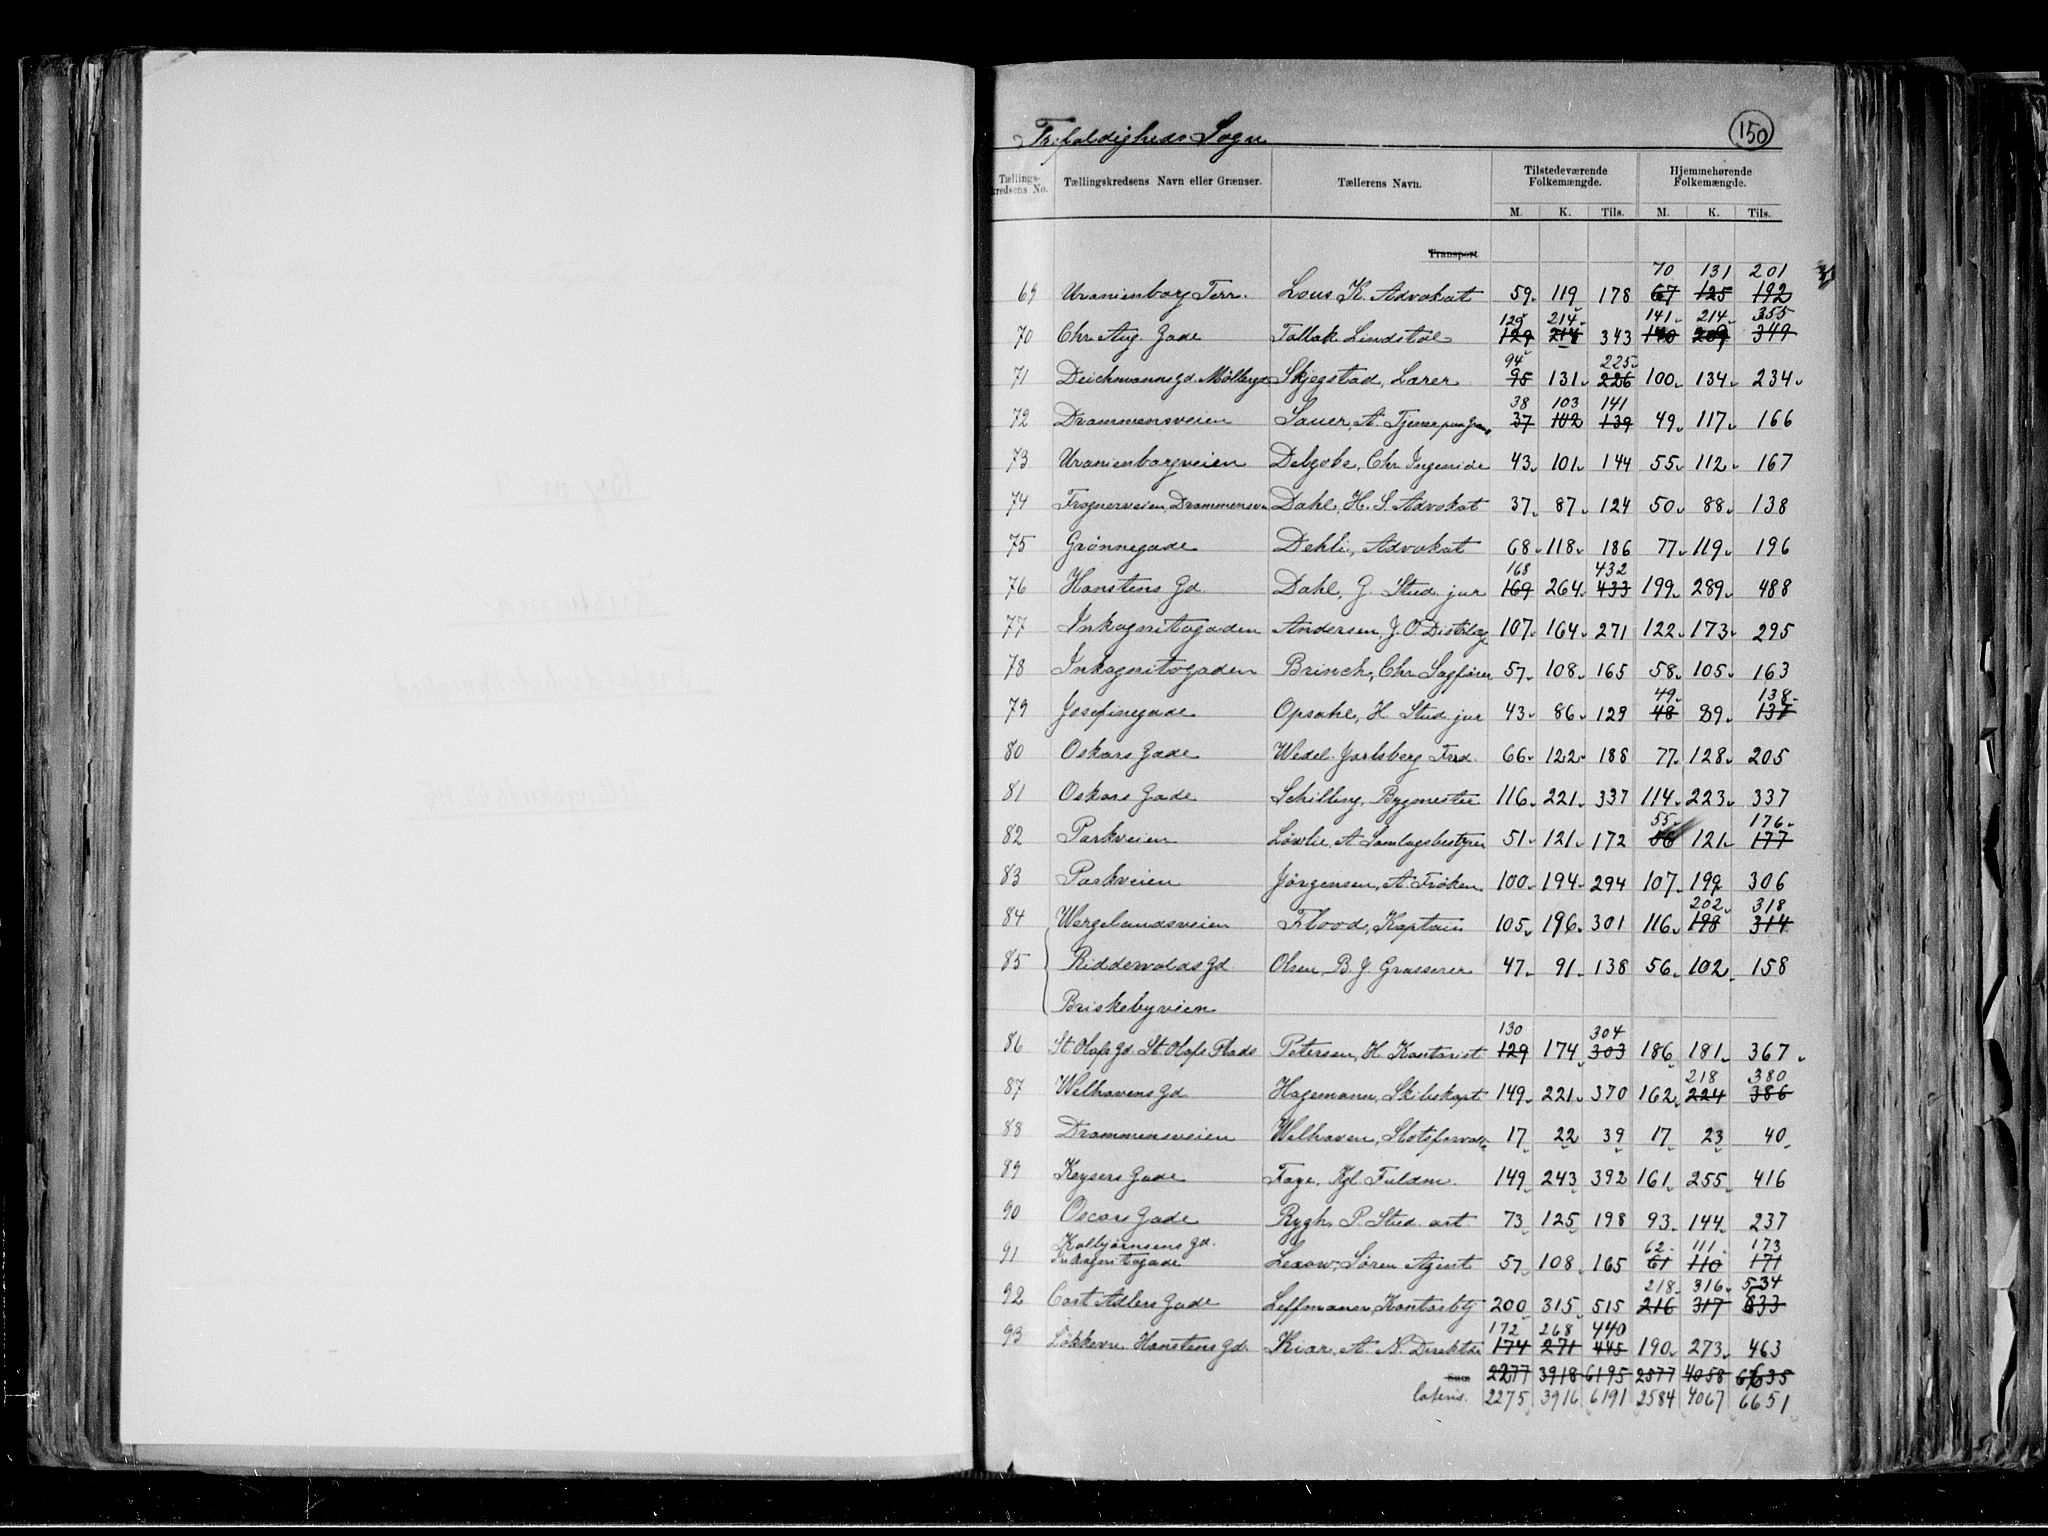 Trefoldigheds Sogn
150
Tællings-kredsens No. Tællingskredsens Navn eller Grænser. Tællerens Navn. Tilstedeværende Folkemængde. Hjemmehørende Folkemængde.
M. K. Tils. M. K. Tils.
Transport
70 131 201
69 Uranienborg Terr. Lous K. Advokat 59 119 178 67 125 192
129 214 141 214 355
70 Chr. Aug. Gade Tallak Lindstøl 129 214 343 140 209 349
94 225
71 Deichmannsgd. Møllergd Skjegstad, Lærer 95 131 226 100 134 234
38 103 141
72 Drammensveien Sauer, A. Tjener paa 37 102 139 49 117 166
73 Uranienborgveien Debgobe, Chr Ingeniør 43 101 144 55 112 167
74 Frognerveien, Drammensv Dahl, H. S. Advokat 37 87 124 50 88 138
75 Grønnegade Dehli, Advokat 68 118 186 77 119 196
168 432
76 Hanstens Gd. Dahl, G. Stud. jur 169 264 433 199 289 488
77 Inkognitogaden Andersen, J. O. 107 164 271 122 173 295
78 Inkognitogaden Brinch, Chr Sagfører 57 108 165 58 105 163
49 138
79 Josefinegade Opsahl, H. Stud. jur 43 86 129 48 89 137
80 Oskars Gade Wedel Jarlsberg Ferd. 66 122 188 77 128 205
81 Oskars Gade Schilling, Bygmester 116 221 337 114 223 337
55 176
82 Parkveien Løvlie, A Samlagsbestyrer 51 121 172 56 121 177
83 Parkveien Jørgensen, A. Frøken 100 194 294 107 199 306
202 318
84 Wergelandsveien Flood, Kaptain 105 196 301 116 198 314
85 Riddervolds Gd. Olsen, B. J Grosserer 47 91 138 56 102 158
Briskebyveien
130 304
86 St. Olafs Gd. St. Olafs Plads Petersen, H. Kontorist 129 174 303 186 181 367
218 380
87 Welhavens Gd Hagemann, Skibskapt 149 221 370 162 224 386
88 Drammensveien Welhaven, Slotsforvalt 17 22 39 17 23 40
89 Keysers Gade Faye, Kgl Fuldm. 149 243 392 161 255 416
90 Oscars Gade Rygh, P. Stud. art. 73 125 198 93 144 237
Kolbjørnsens Gd. 62 111 173
91 Inkognitogade Lexow, Søren Agent 57 108 165 61 110 171
218 316 534
92 Cort Adlers Gade Leffmann, Kontorbtj 200 315 515 216 317 533
172 268 440
93 Løkkevn. Hanstens Gd. Kiær, A. N. Direktør 174 271 445 190 273 463
Sum 2277 3918 6195 2577 4058 6635
lateris. 2275 3916 6191 2584 4067 6651